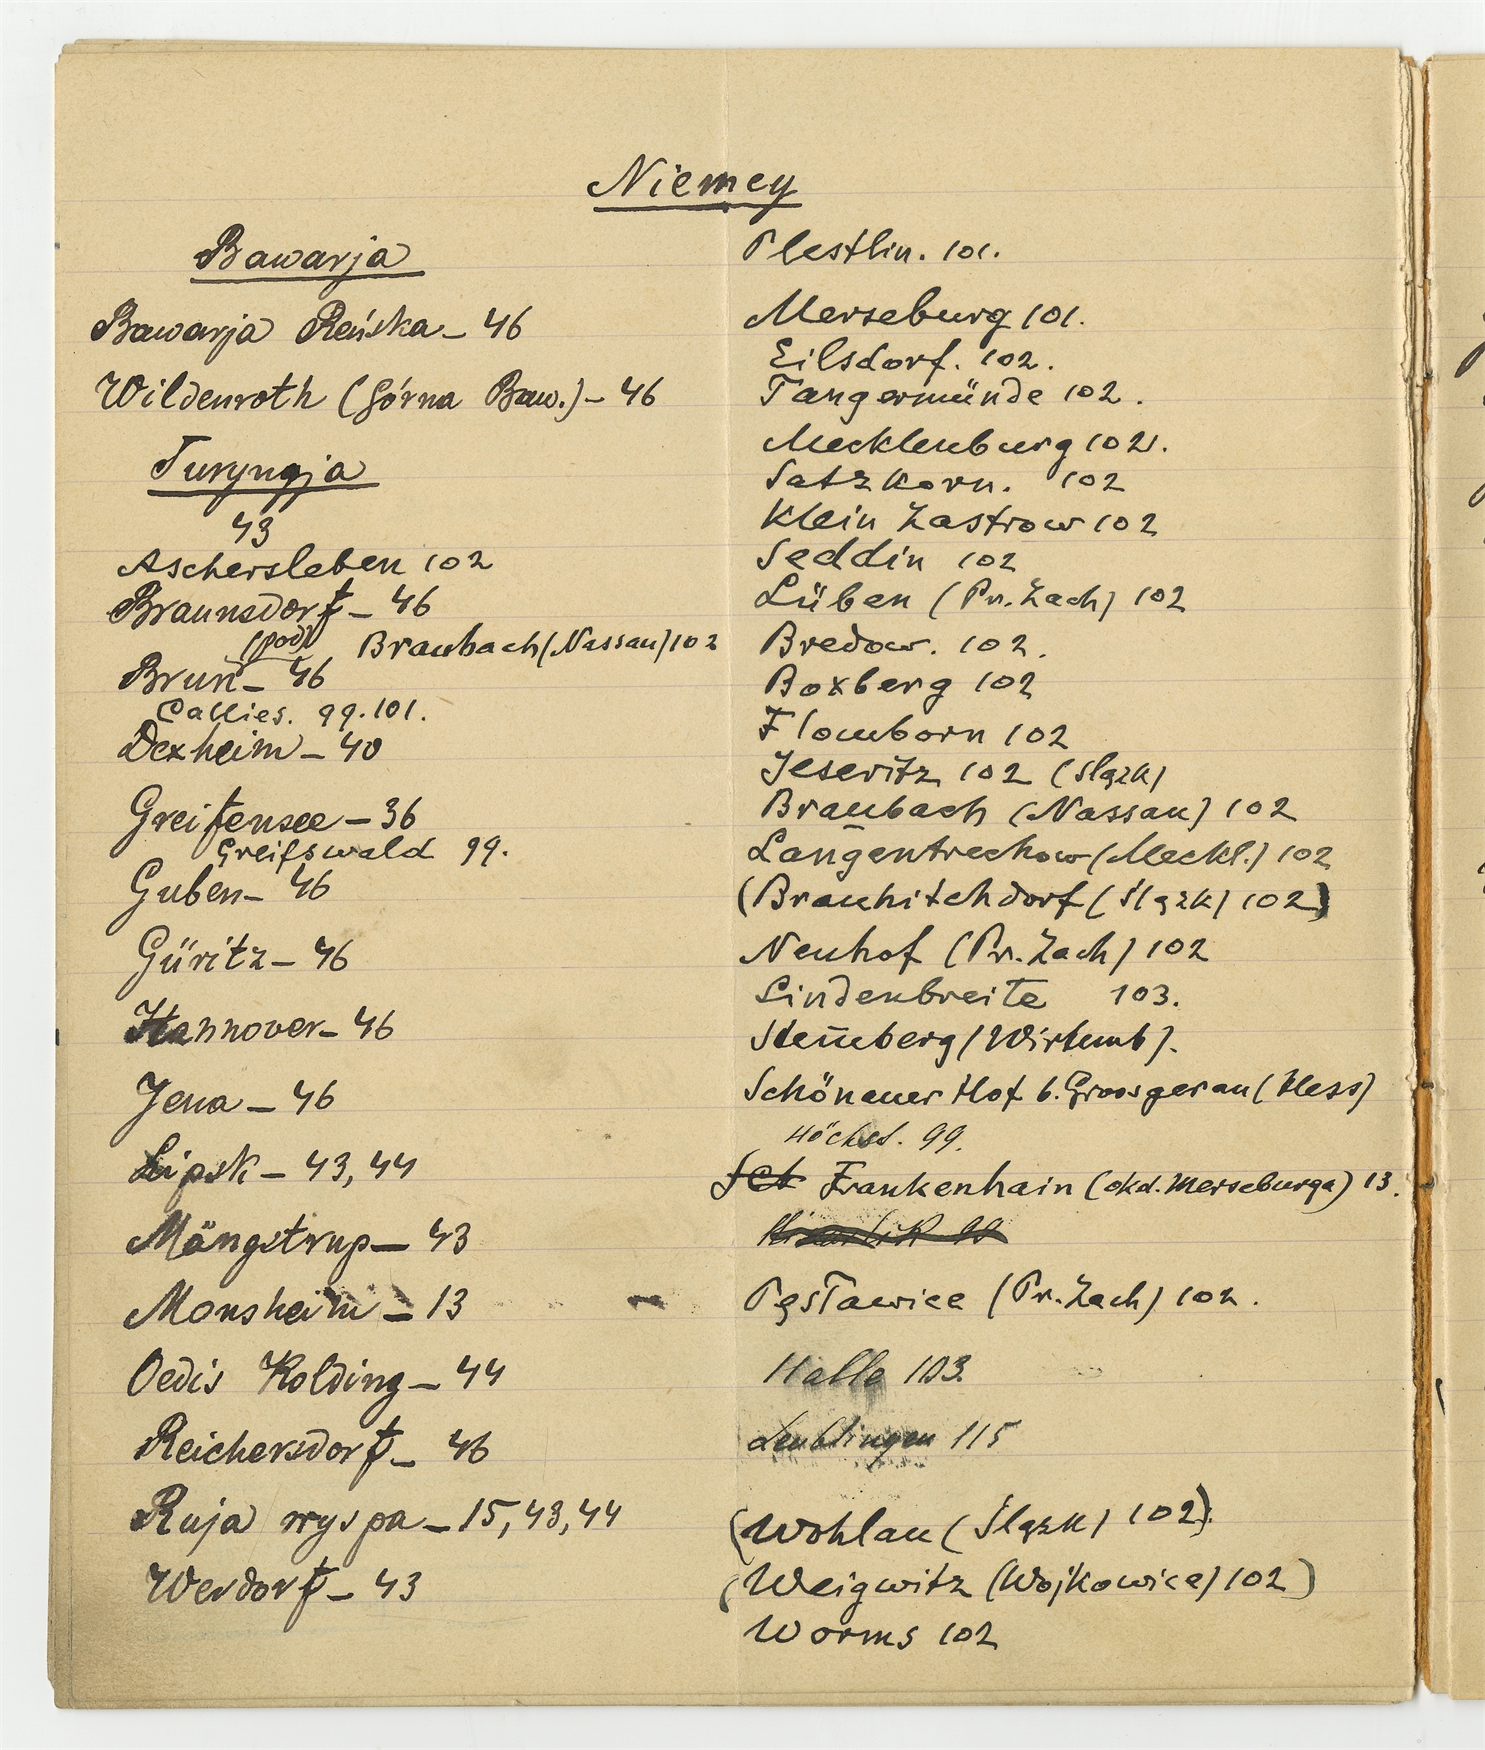 Niemcy
Bawarja
Bawarja Reńska – 46
Wildenroth (Górna Baw.) – 46
Turyngja
43
Aschersleben 102
Braunsdorf – 46
(pod) Braubach (Nassau) 102
Brun – 46
Callies. 99. 101.
Dexheim – 40
Greifensee – 36
Greifswald 99.
Guben – 46
Güritz – 46
Hannover – 46
Jena – 46
Lipsk – 43, 44
Mängstrup – 43
Monsheim – 13
Oedis Kolding – 44
Reichersdorf – 46
Ruja wyspa – 15, 43, 44
Werdorf – 43
Plestlin. 101.
Merseburg 101.
Eilsdorf. 102.
Tangermünde 102.
Mecklenburg 102.
Satzkorn. 102
Klein Zastrow 102
Seddin 102
Lüben (Pr. Zach) 102
Bredow. 102.
Boxberg 102
Flomborn 102
Jeseritz 102 (Ślązk)
Braubach (Nassau) 102
Langentrechow (Meckl.) 102
(Brauchitchdorf (Ślązk) 102)
Neuhof (Pr. Zach) 102
Lindenbreite 103.
(Wirtemb).
Schönauer Hof b. Groosgerau (Hess)
Höchst. 99.
Frankenhain (okd. Merseburga) 13.
Pęstawice (Pr. Zach) 102.
Halle 103.
Leublingen 115
(Wohlau (Ślązk) 102).
(Weigwitz (Wojkowice) 102)
Worms 102